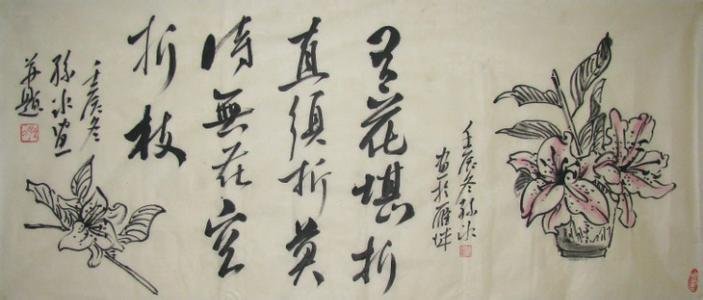 壬辰冬孫冰
畫於雁城
有花堪折
直須折莫
待無花空
折枝
壬辰冬
孫冰畫
并題